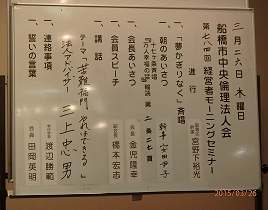 三月二六日 木曜日
船橋市中央倫理法人会
第七八四回 経営者モーニングセミナー
進行 宮野下裕光
一、「夢かぎりなく」斉唱
一、朝のあいさつ
「万人幸福の栞」輪読 第二条 二七頁
一、会長あいさつ 会長 金児隆幸
一、会員スピーチ 橋本宏志
一、講話
テーマ「苦難福門、やればできる」
法人アドバイザー 三上忠男
一、連絡事項 渡辺勝範
一、誓いの言葉 会員 田岡英明
2015/03/26